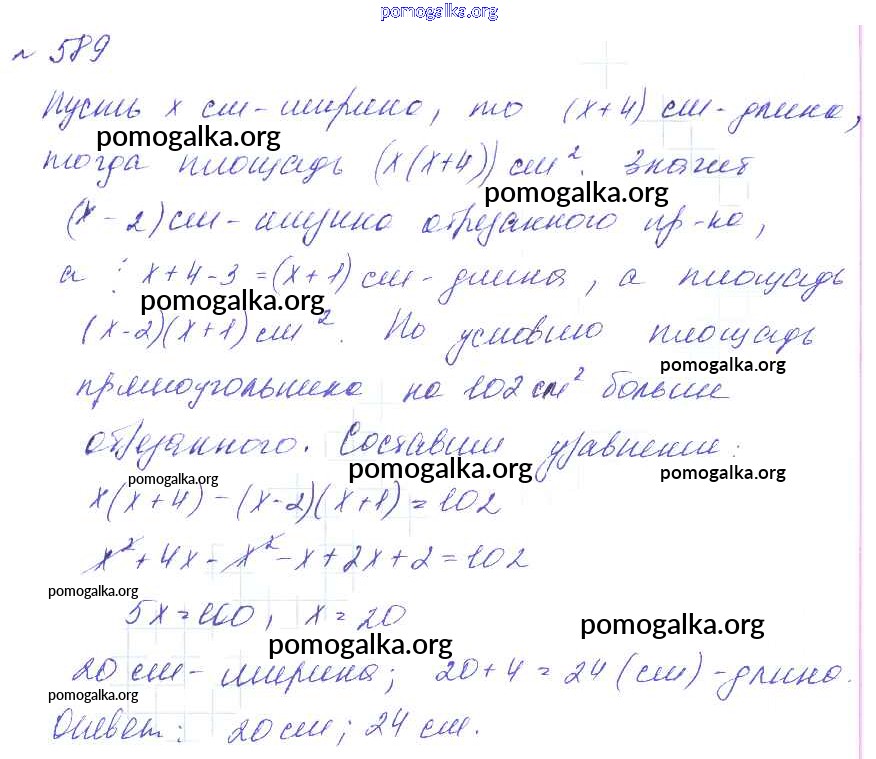 pomogalka.org
№ 589
Пусть x см - ширина, то (x+4) см - длина,
pomogalka.org
тогда площадь (x(x+4)) см². Значит
pomogalka.org
(x-2) см - ширина отрезанного пр-ка,
а x+4-3=(x+1) см - длина, а площадь
pomogalka.org
(x-2)(x+1) см². По условию площадь
pomogalka.org
прямоугольника на 102 см² больше
отрезанного. Составим уравнение:
pomogalka.org pomogalka.org pomogalka.org
x(x+4)-(x-2)(x+1)=102
x²+4x-x²-x+2x+2=102
pomogalka.org
5x=100, x=20
pomogalka.org pomogalka.org
20 см - ширина; 20+4=24 (см) - длина.
pomogalka.org
Ответ: 20 см; 24 см.